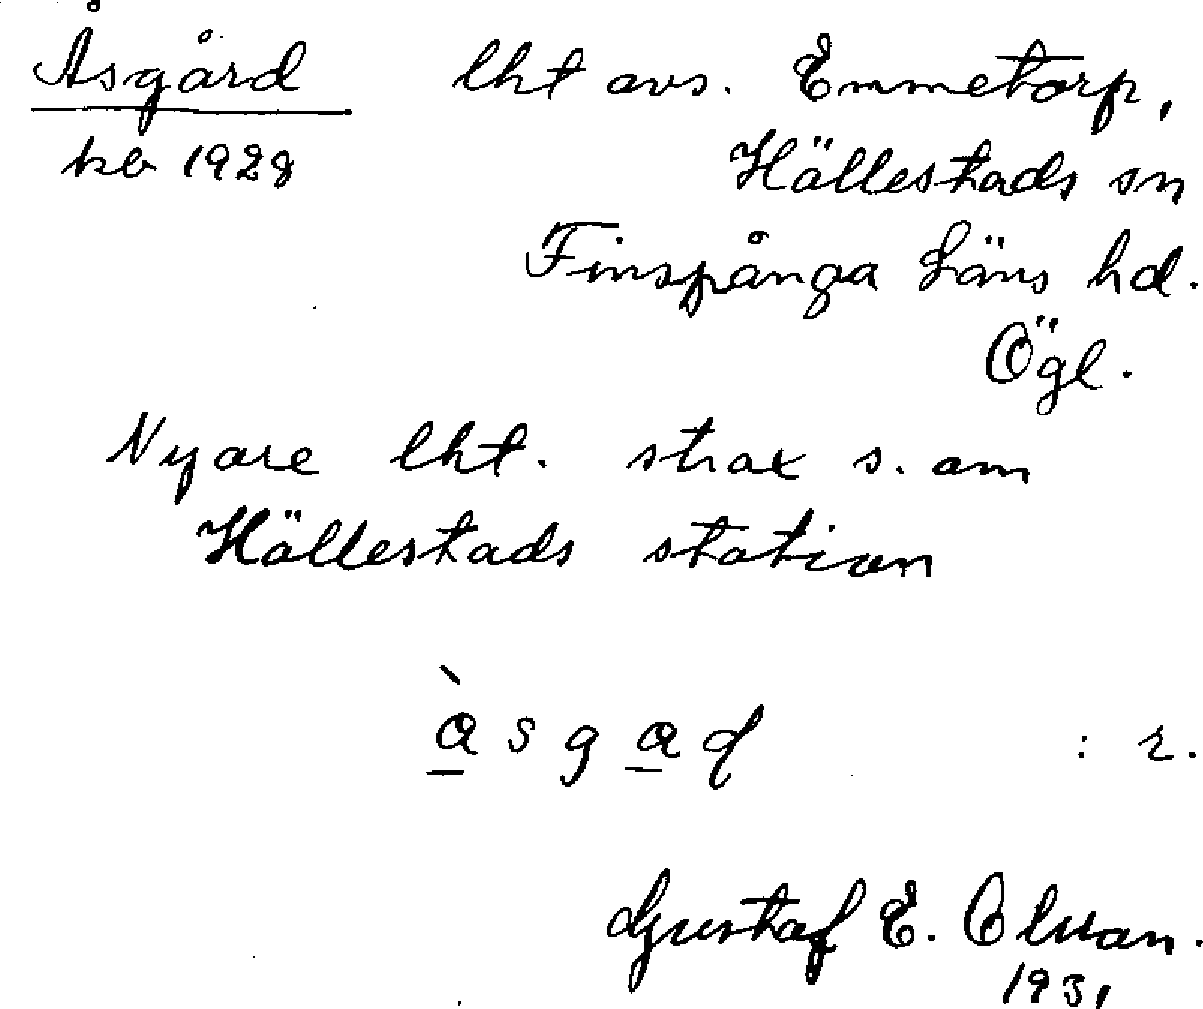 Åsgård lht avs. Emmetorp,
kb 1928 Hällestads sn
Finspånga Läns hd.
Ögl.
Nyare lht. strax s. om
Hällestads station
àsgaɖ : r.
Gustaf E. Olsson.
1931